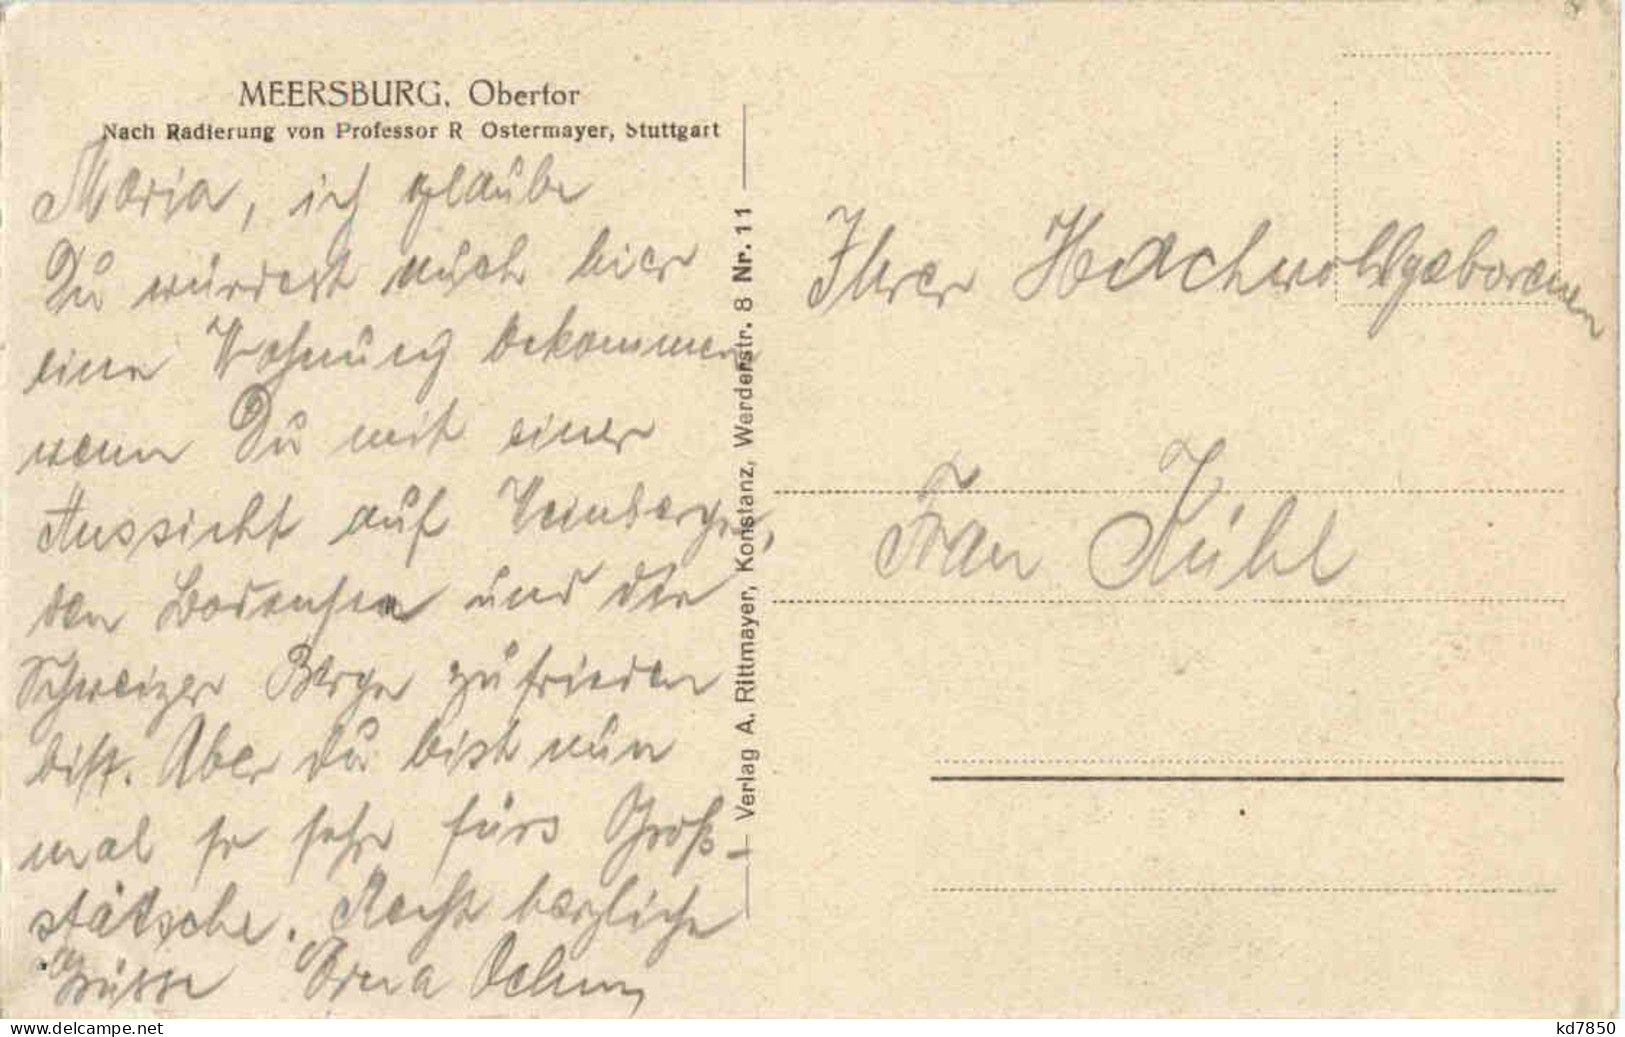 MEERSBURG, Obertor
Nach Radierung von Professor R Ostermayer, Stuttgart
Maria, ich glaube
Du würdest auch hier
eine Wohnung bekommen
wenn Du mit einer
Aussicht auf Weinberge,
den Bodensee und die
Schweizer Berge zufrieden
bist. Aber du bist nun
mal so sehr fürs Groß-
städtsche. Recht herzliche
Grüsse
Verlag A. Rittmayer, Konstanz, Werderstr. 8 Nr. 11
Ihrer Hochwohlgeborenen
Frau Kühl
kd7850